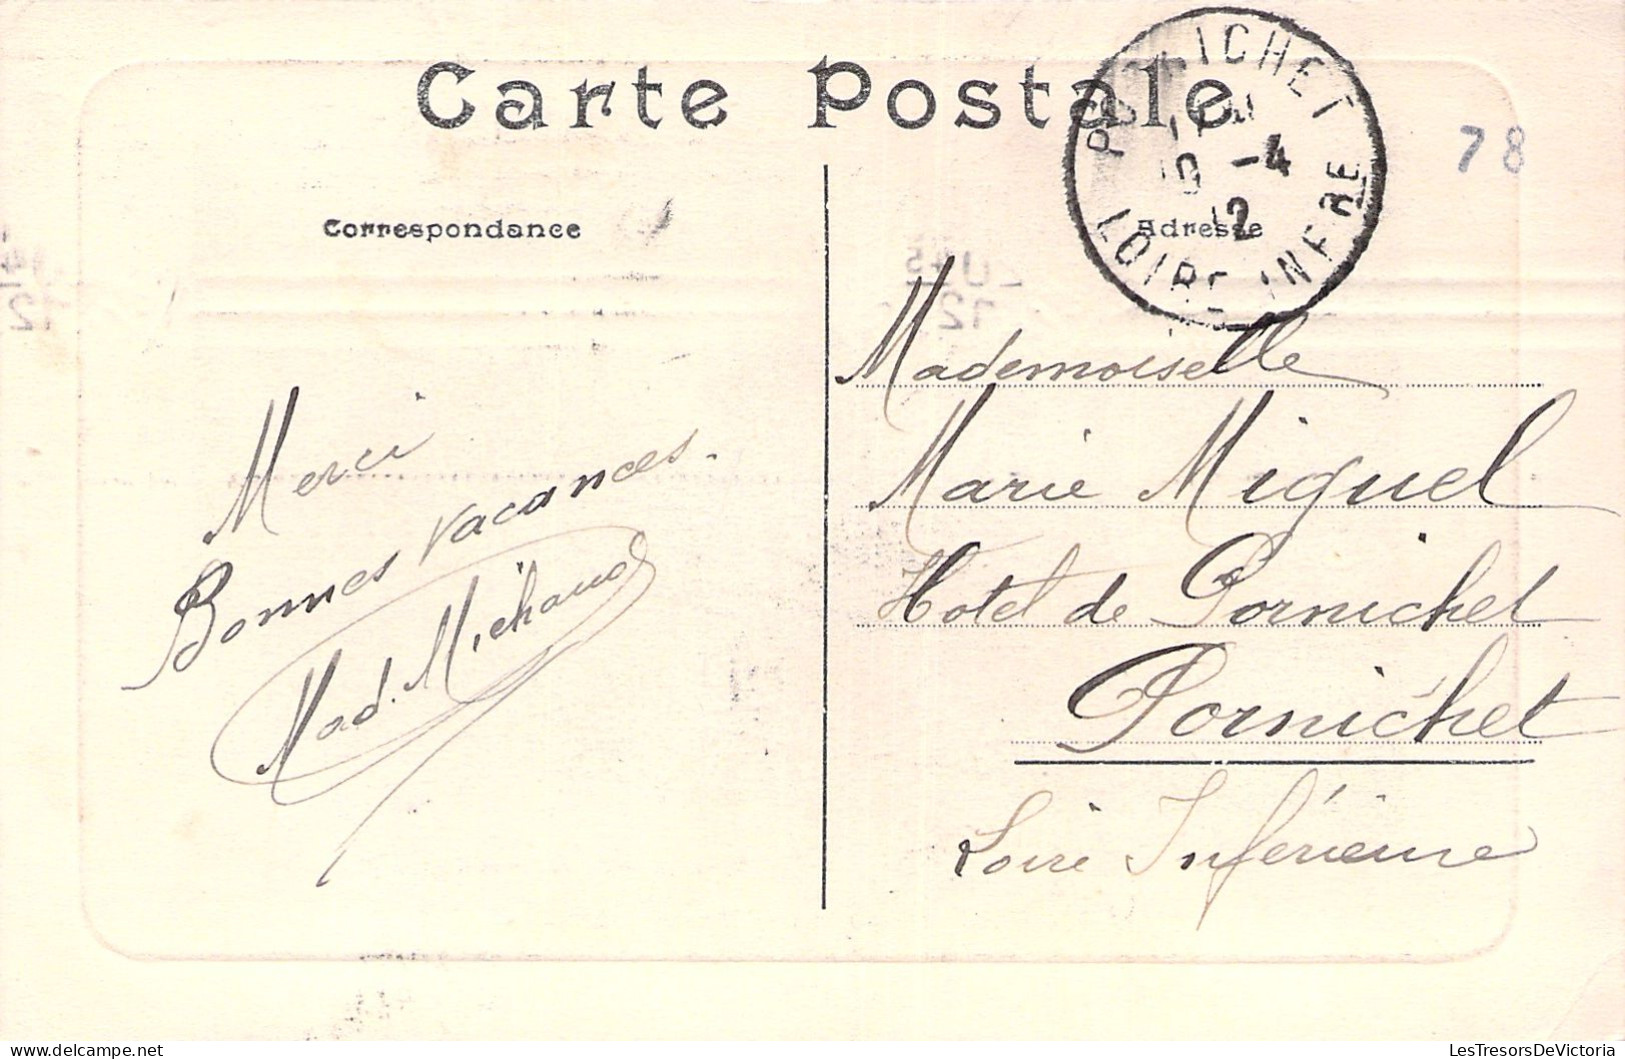 Carte Postale
PORNICHET
-4
12
LOIRE INFRE
78
Correspondance
Adresse
Merci
Bonnes vacances.
Mad. Michaud
Mademoiselle
Marie Miguel
Hotel de Pornichet
Pornichet
Loire Inférieure
LesTresorsDeVictoria
delcampe.net